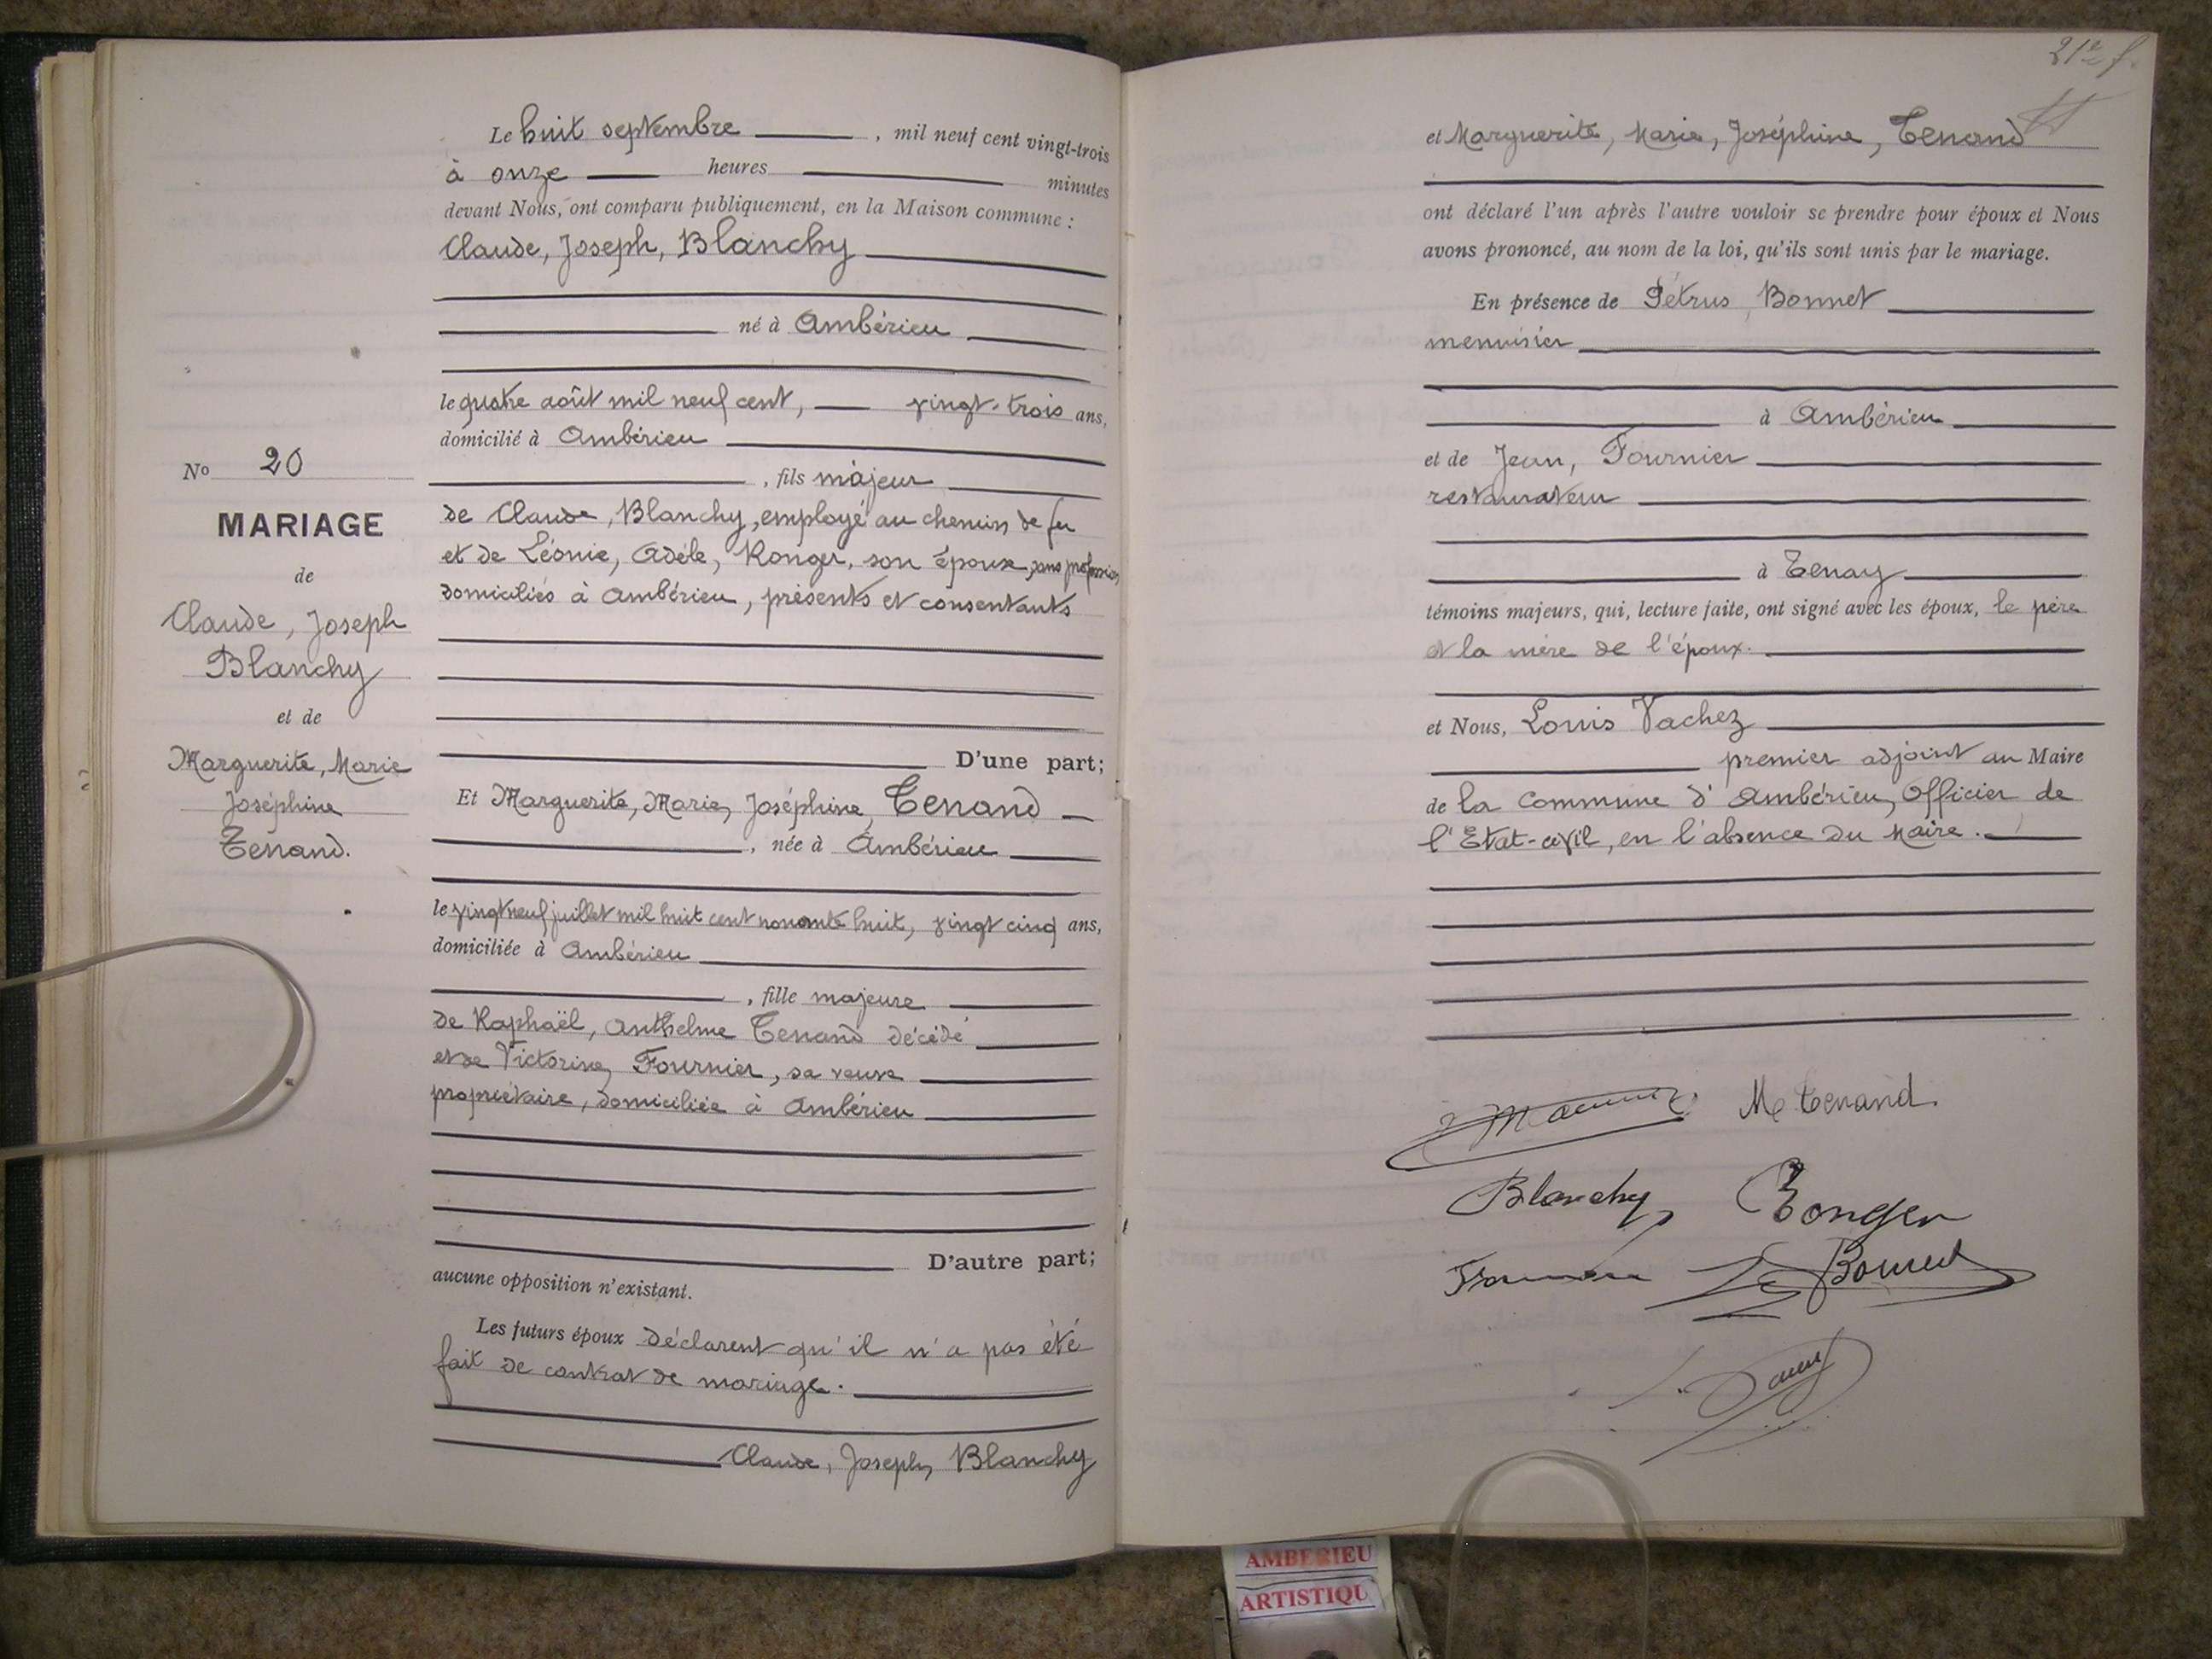 Le huit septembre, mil neuf cent vingt-trois
à onze heures minutes
devant Nous, ont comparu publiquement, en la Maison commune :
Claude, Joseph, Blanchy
né à Ambérieu
le quatre août mil neuf cent, vingt-trois ans,
domicilié à Ambérieu
, fils majeur
de Claude, Blanchy, employé au chemin de fer
et de Léonie, Adèle, Ronger, son épouse, sans profession
domiciliés à Ambérieu, présents et consentants
D'une part;
Et Marguerite, Marie, Joséphine, Tenand
, née à Ambérieu
le vingt neuf juillet mil huit cent nonante huit, vingt cinq ans,
domiciliée à Ambérieu
, fille majeure
de Raphaël, Anthelme Tenand décédé
et de Victorine, Fournier, sa veuve
propriétaire, domiciliée à Ambérieu
D'autre part;
aucune opposition n'existant.
Les futurs époux déclarent qu'il n'a pas été
fait de contrat de mariage.
Claude, Joseph, Blanchy
No 20
MARIAGE
de
Claude, Joseph
Blanchy
et de
Marguerite, Marie
Joséphine
Tenand.
21e f.
et Marguerite, Marie, Joséphine, Tenand
ont déclaré l'un après l'autre vouloir se prendre pour époux et Nous
avons prononcé, au nom de la loi, qu'ils sont unis par le mariage.
En présence de Pétrus, Bonnet
menuisier
à Ambérieu
et de Jean, Fournier
restaurateur
à Tenay
témoins majeurs, qui, lecture faite, ont signé avec les époux, le père
et la mère de l'époux.
et Nous, Louis Vachez
premier adjoint au Maire
de la Commune d'Ambérieu, Officier de
l'Etat-civil, en l'absence du Maire.
M Tenand
Blanchy Ronger
Fournier Bonnet
AMBERIEU
ARTISTIQU